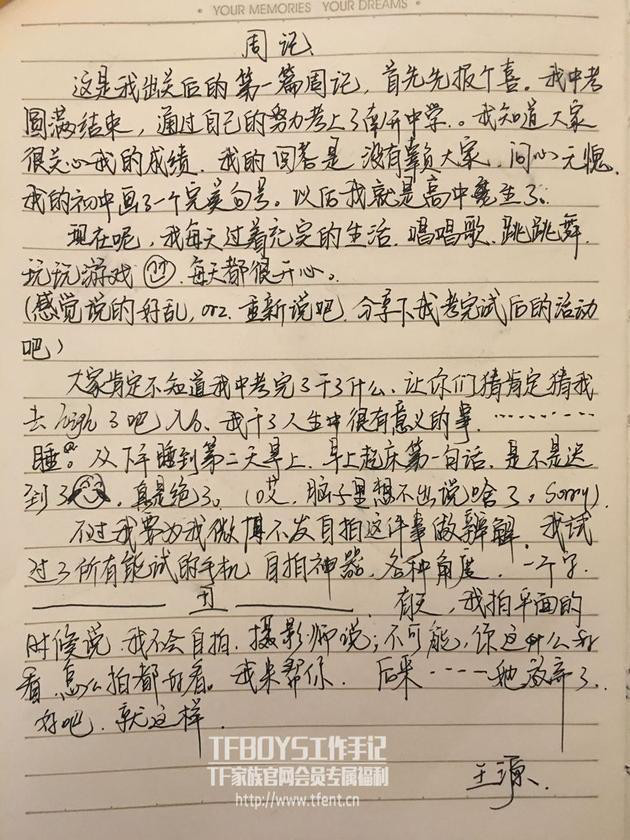 YOUR MEMORIES YOUR DREAMS
周记
这是我出关后的第一篇周记，首先先报个喜。我中考
圆满结束，通过自己的努力考上了南开中学。。我知道大家
很关心我的成绩．我的回答是 没有辜负大家．问心无愧．
我的初中画了一个完美句号。以后我就是高中魔生了。
现在呢，我每天过着充实的生活．唱唱歌、跳跳舞．
玩玩游戏 每天都很开心。
(感觉说的好乱, orz. 重新说吧．分享下我考完试后的活动
吧)
大家肯定不知道我中考完了干了什么．让你们猜肯定猜我
去 high 了吧 No. 我干了人生中很有意义的事．…………
睡。从下午睡到第二天早上．早上起床第一句话．是不是迟
到了 真是绝了。(哎．脑子里想不出说啥了。Sorry)．
不过我要为我微博不发自拍这件事做辩解．我试
过了所有能试的手机 自拍神器．各种角度．一个字．
——— 丑 ———．有天，我拍平面的
时候说．我不会自拍．摄影师说；不可能，你这什么
看 怎么拍都好看。我来帮你．后来----她放弃了．
好吧．就这样．
王源．
TFBOYS工作手记
TF家族官网会员专属福利
http://www.tfent.cn